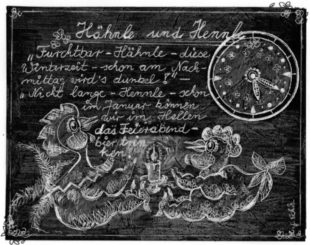 Hähnle und Hennle
„Furchtbar - Hähnle - diese
Winterzeit - schon am Nach-
mittag wird's dunkel!" -
„Nicht lange - Hennle - schon
im Januar können
wir im Hellen
das Feierabend-
bier trin-
ken